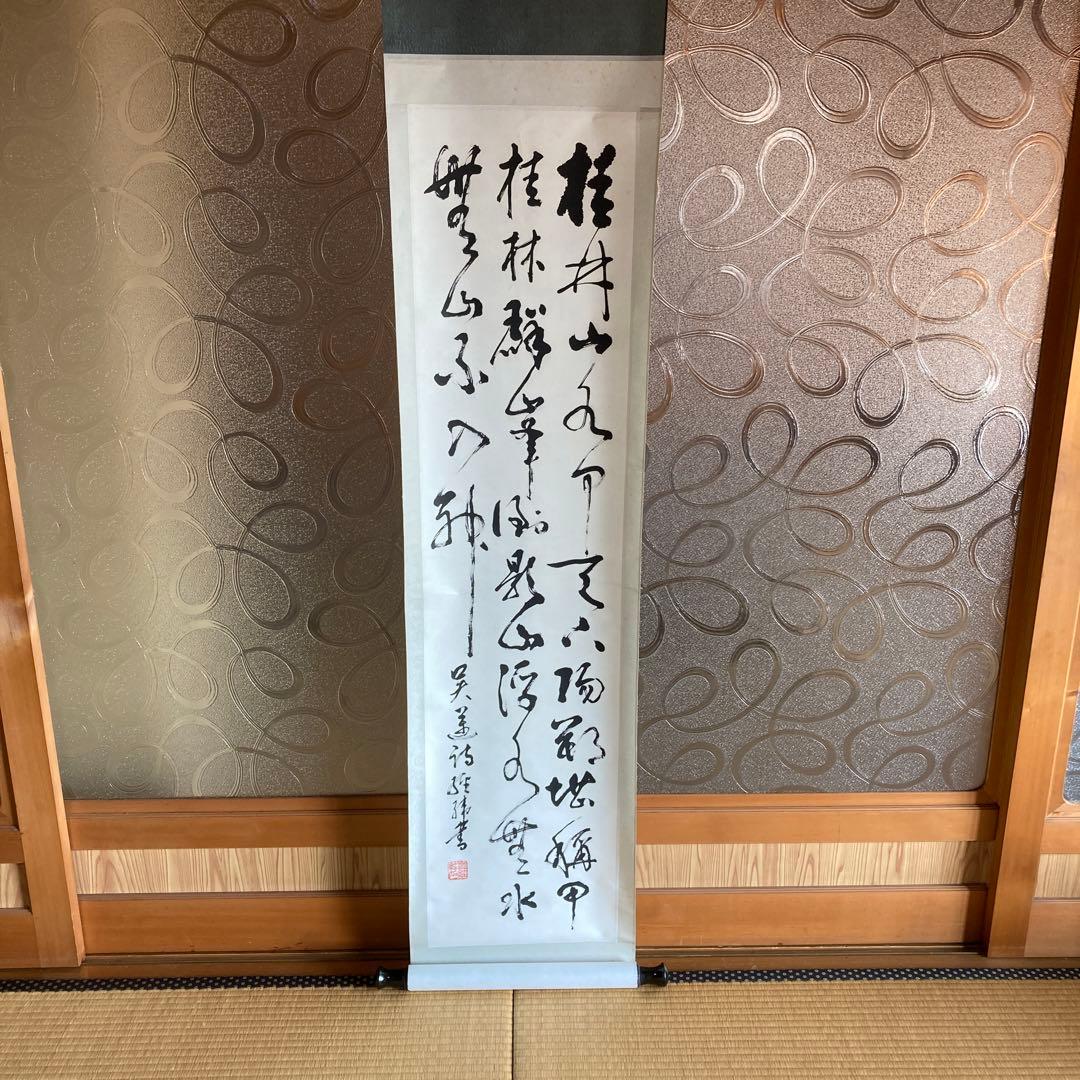 桂林山水甲天下陽朔堪稱甲
桂林群峯倒影山浮水無水
無山不入神
吳邁詩經緯書